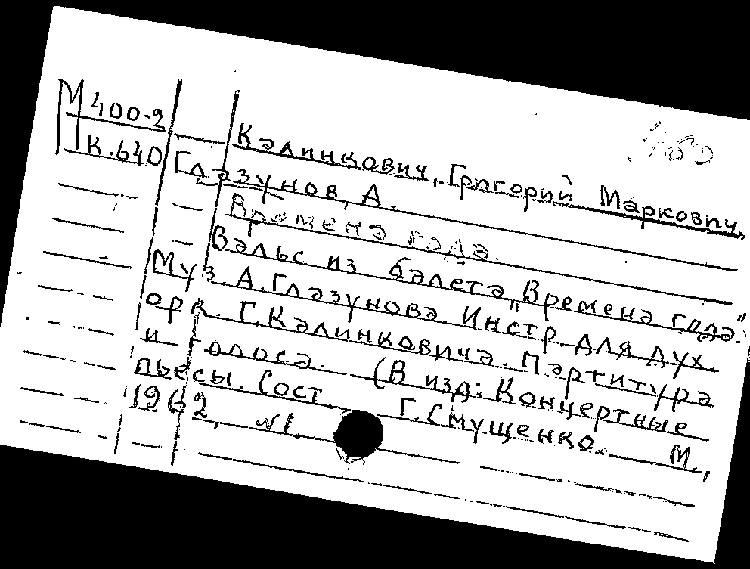 М 400-2
К.640
Калинкович, Григорий Маркович,
Глазунов, А.
Времена года
Вальс из балета „Времена года".
Муз. А.Глазунова. Инстр. для дух.
орк. Г.Калинковича. Партитура
и голоса. (В изд: Концертные
пьесы. Сост Г.Смущенко. М.,
1962, №1.